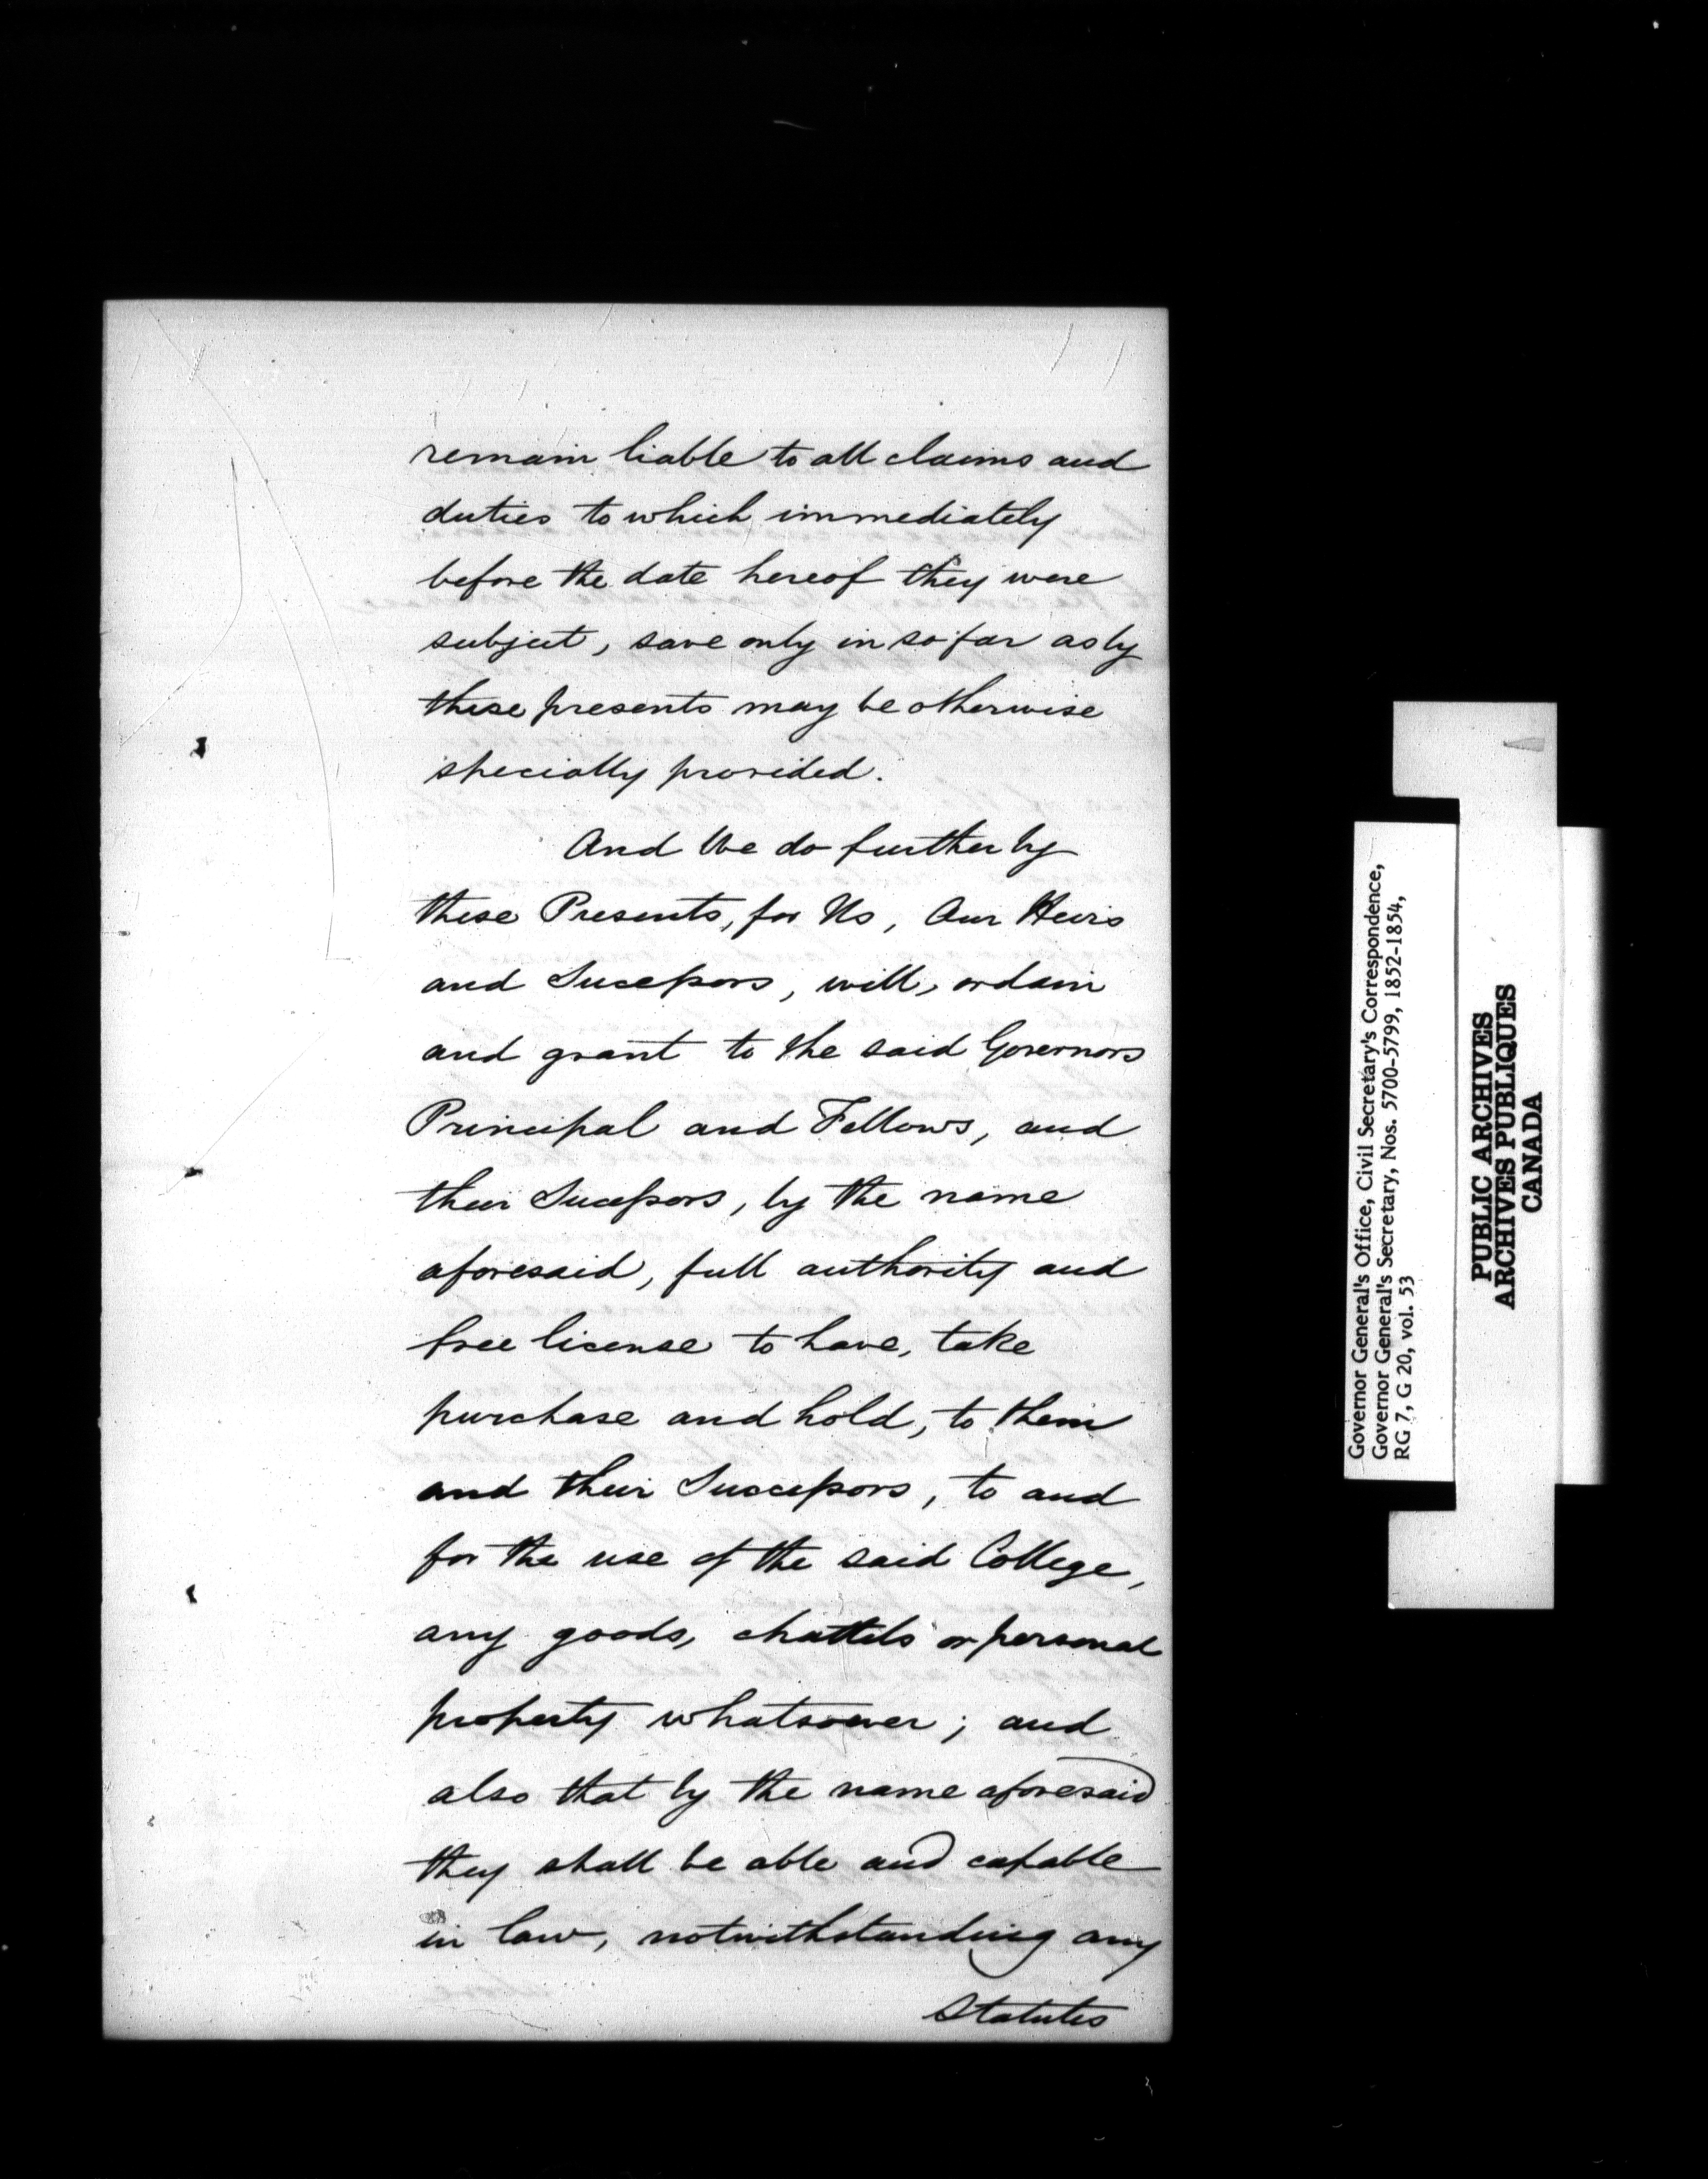 remain liable to all claims and
duties to which immediately
before the date hereof they were
subject, save only in so far as by
these presents may be otherwise
specially provided.
And We do further by
these Presents, for Us, Our Heirs
and Sucessors, will, ordain
and grant to the said Governors
Principal and Fellows, and
their Sucessors, by the name
aforesaid, full authority and
free license to have, take
purchase and hold, to them
and their Successors, to and
for the use of the said College,
any goods, chattels or personal
property whatsoever; and
also that by the name aforesaid
they shall be able and capable
in law, notwithstanding any
Statutes
Governor General's Office, Civil Secretary's Correspondence,
Governor General's Secretary, Nos. 5700-5799, 1852-1854,
RG 7, G 20, vol. 53
PUBLIC ARCHIVES
ARCHIVES PUBLIQUES
CANADA